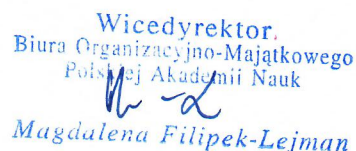 Wicedyrektor.
Biura Organizacyjno-Majątkowego
Polskiej Akademii Nauk
Magdalena Filipek-Lejman